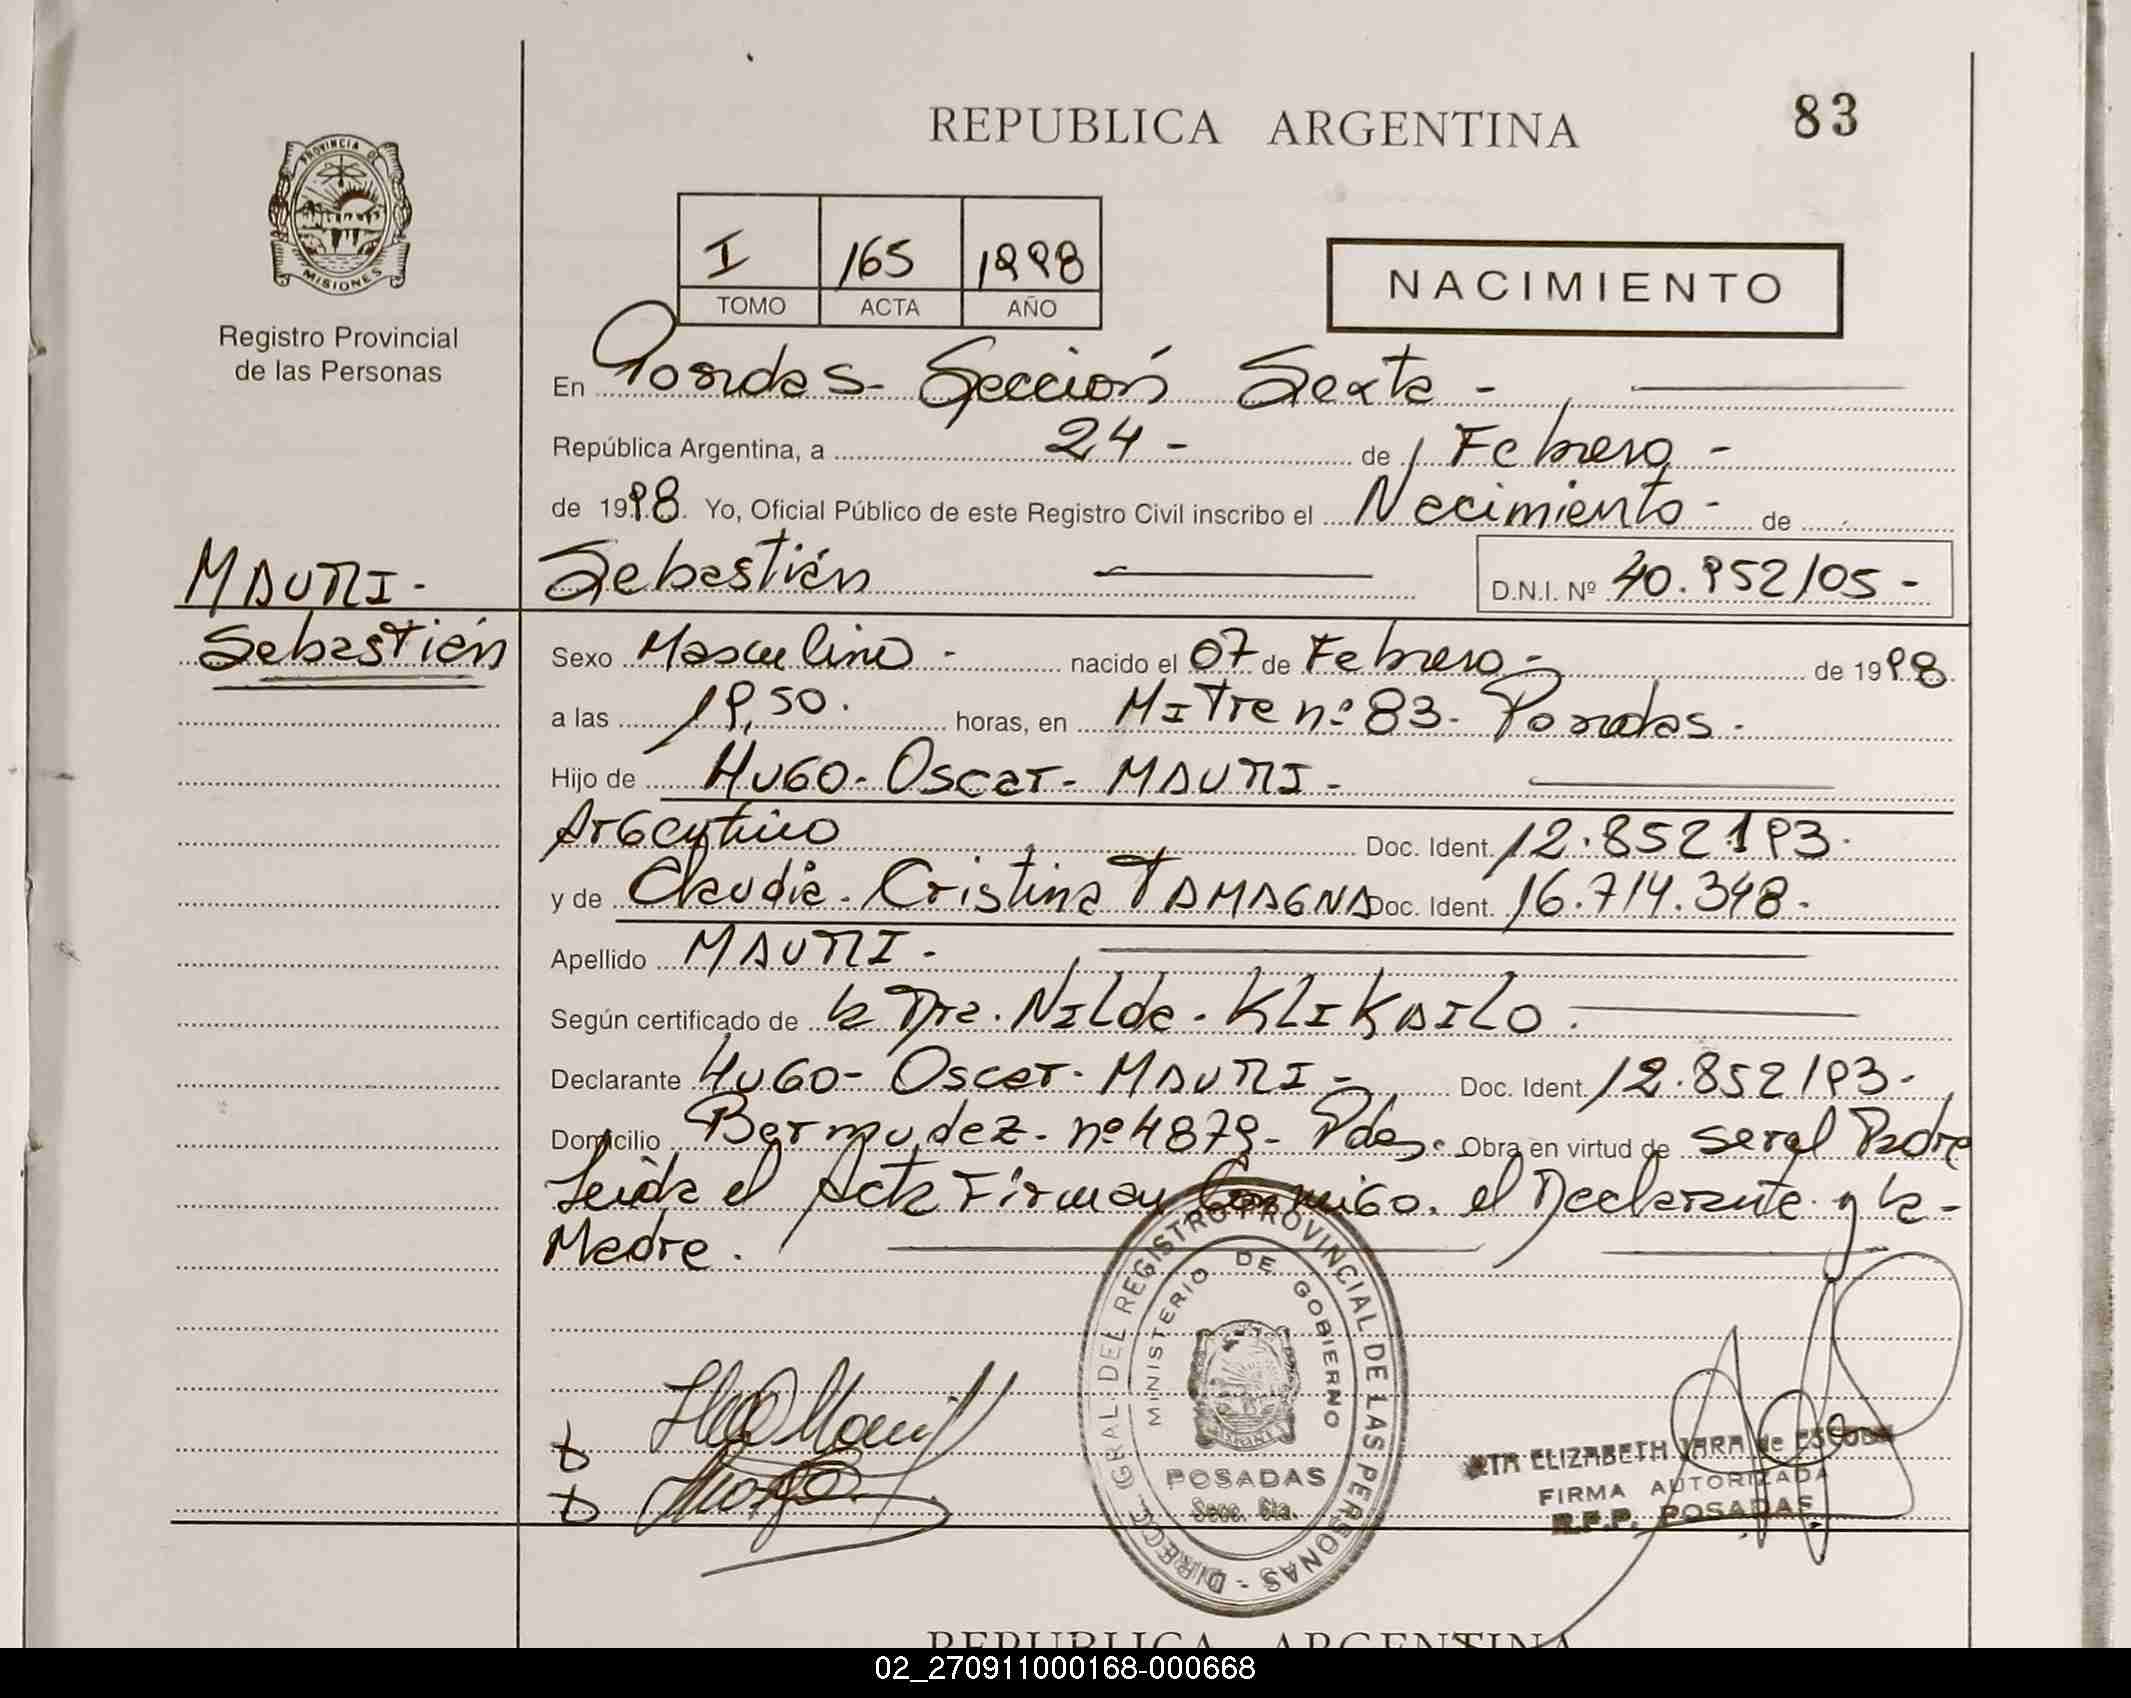 REPUBLICA ARGENTINA
83
PROVINCIA DE
MISIONES
Registro Provincial
de las Personas
I 165 1998
TOMO ACTA AÑO
NACIMIENTO
En Posadas - Sección Sexta -
República Argentina, a 24 - de Febrero -
de 1998. Yo, Oficial Público de este Registro Civil inscribo el Nacimiento - de
MAURI -
Sebastián
Sebastián
D.N.I. Nº 40.952105 -
Sexo Masculino - nacido el 07 de Febrero - de 1998
a las 19,50. horas, en Mitre nº 83 - Posadas -
Hijo de HUGO - Oscar - MAURI -
Argentino Doc. Ident. 12.852.193.
y de Claudia - Cristina TAMAGNA Doc. Ident. 16.714.348.
Apellido MAURI -
Según certificado de la Dra. Nilda - KLIKAILO.
Declarante HUGO - Oscar - MAURI - Doc. Ident. 12.852193.
Domicilio Bermudez - nº 4879 - Pdas. Obra en virtud de ser el Padre
Leida el Acta Firman Conmigo. el Declarante y la -
Madre.
DIRECC. GRAL DEL REGISTRO PROVINCIAL DE LAS PERSONAS -
MINISTERIO DE GOBIERNO
POSADAS
Secc. 6ta.
ELIZABETH JARA de
FIRMA AUTORIZADA
R.P.P. POSADAS
REPUBLICA ARGENTINA
02_270911000168-000668